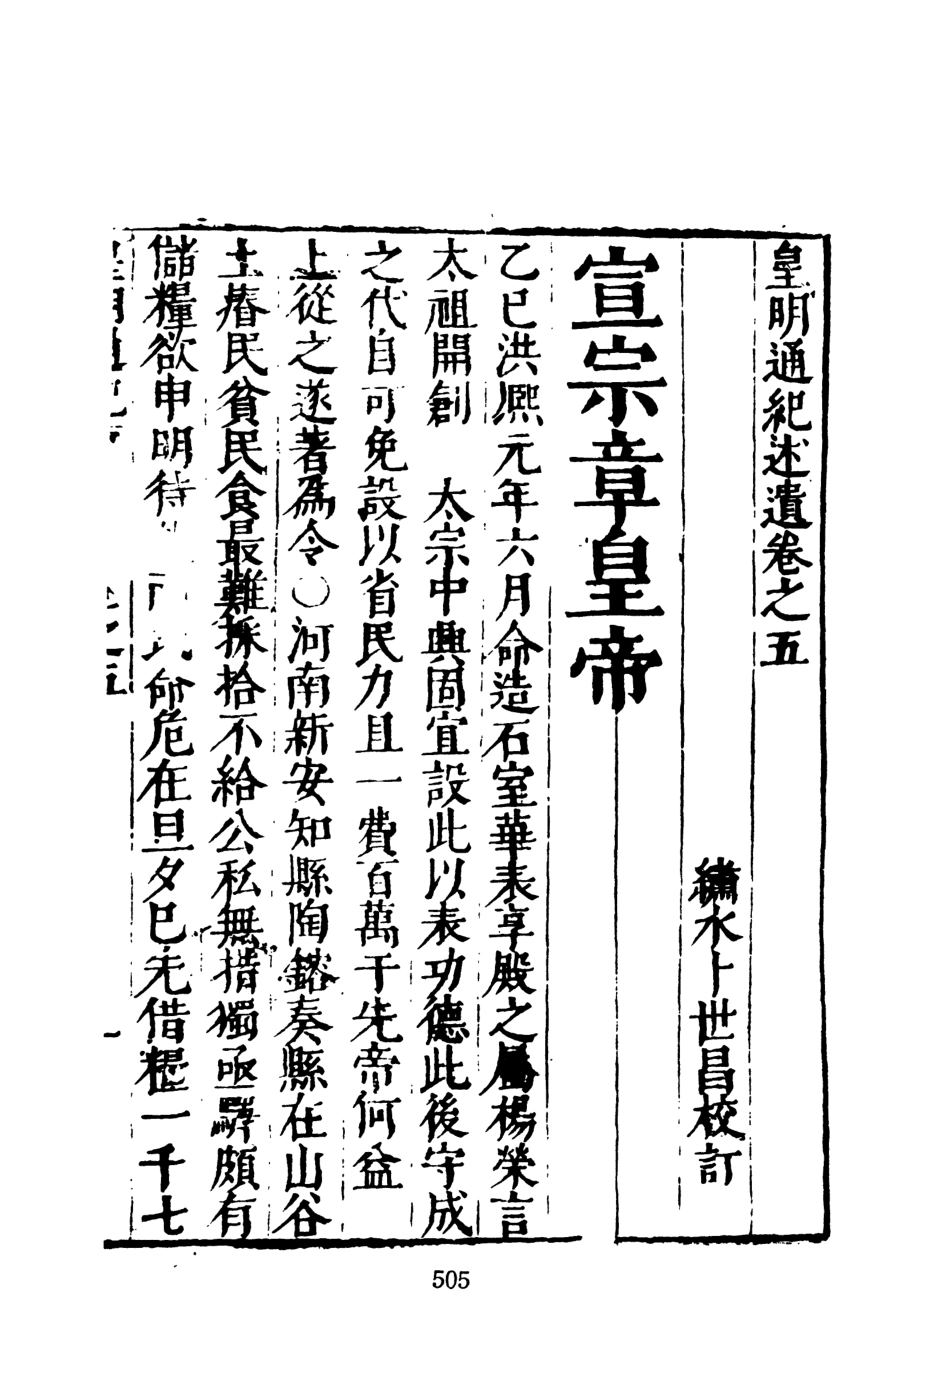 皇明通紀述遺卷之五
繡水卜世昌校訂
宣宗章皇帝
乙巳洪熙元年六月命造石室華表享殿之屬楊榮言
太祖開創　太宗中興固宜設此以表功德此後守成
之代自可免設以省民力且一費百萬于先帝何益
上從之遂著爲令○河南新安知縣陶鎔奏縣在山谷
土瘠民貧民食最難採拾不給公私無措獨函驛頗有
儲糧欲申明待 命危在旦夕已先借糧一千七
505